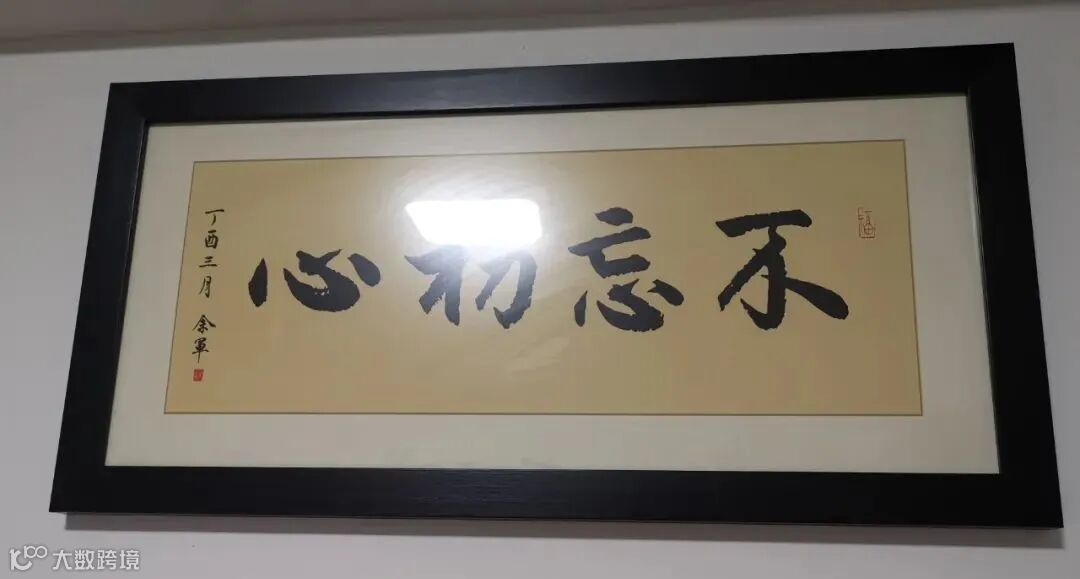 不忘初心
丁酉三月 余軍
大数跨境